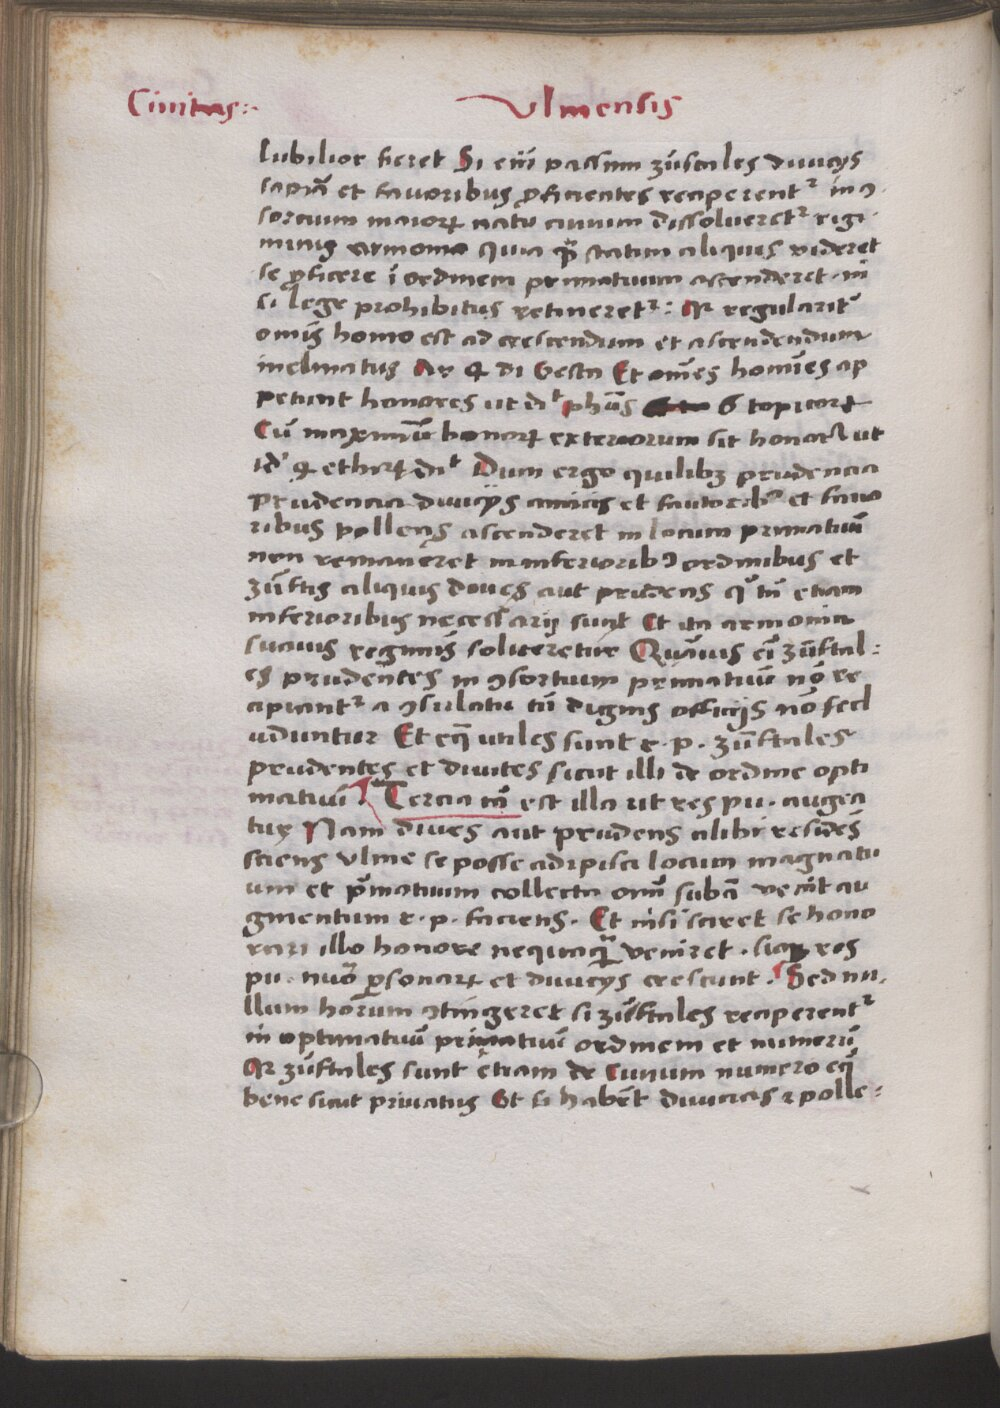 Ciuitas :· Vlmensis
lubilior fieret Si eni͞ passim zu̍ftales diuicijs
sapia͞ et fauoribus ꝓficientes reciperentᷣ in ꝯ·
sorcium maioꝝ natu ciuium dissolueretᷣ regi·
minis armonia Quia qᷓ statim aliquis videret
se ꝓficere i͞ ordinem primatuum ascenderet ni
si lege prohibitus retineretᷣ : Qꝛ regularit͛
omīs homo est ad crescendum et ascendendum
inclinatus Ar 4 di Gesta Et om̄es homi͞es ap
petunt honores ut diᵗ ph̄us 6 topicoꝝ
Cū maximū bonoꝝ exteriorum sit honor ut
id͛ 4 ethicꝝ diᵗ Dum ergo quilibꝫ prudencia
prudencia diuicijs amicis et fautoribꝰ et fauo
ribus pollens ascenderet in locum primatuū
non remaneret in inferioribꝰ ordinibus et
zūftis aliquis diues aut prudens qͥ tn̄ etiam
inferioribus necessarij sunt Et ita armonia
suauis regiminīs solueretur Quāuis ei͞ zūftal :
es prudentes in ꝯsortium primatuū nō re
cipiantᷣ a ꝯsulatu tn̄ dignis officijs nō secl
uduntur Et eq̄ utiles sunt r · p · zūftales
prudentes et diuites sicut illi de ordine opti
matuū Tercia cā est illa ut res pu · augea
tur Nam diues aut prudens alibi residēs
sciens Vlme se posse adipisci locum magnatu
um et pͥmatuum collecta omī subā venit au
gmentum r · p · faciens · Et nisi sciret se hono
rari illo honore nequaqᷓ veniret · sicqꝫ res
pu · nuō ꝑsonaꝝ et diuicijs crescunt · Sed nu·
llum horum ꝯtingeret si zūftales reciperentᷣ
in optimatuū primatiuū ordinem et numerū
Qꝛ zūftales sunt etiam de Ciuium numero eq̄
bene sicut priuatus Et si habēt diuicias ⁊ polle :